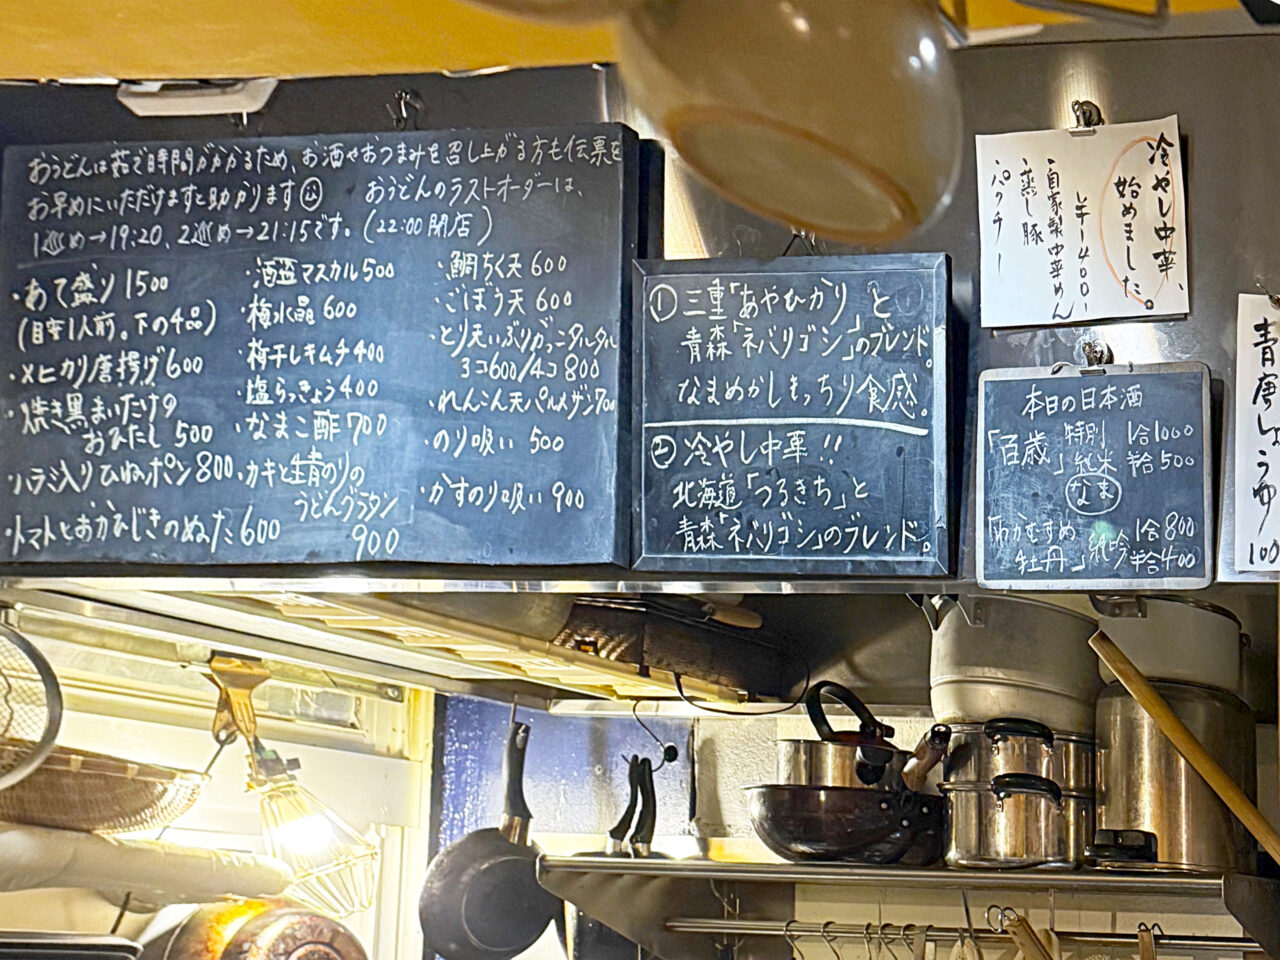 おうどんは茹で時間がかかるため、お酒やおつまみを召し上がる方も伝票を
お早めにいただけますと助かります おうどんのラストオーダーは、
1巡め→19:20、2巡め→21:15です。(22:00閉店)
・あて盛り 1500
(目安1人前。下の4品)
・メヒカリ唐揚げ 600
・焼き黒まいたけの
おひたし 500
・ハラミ入りひねポン 800
・トマトとおかひじきのぬた 600
・酒盗マスカル 500
・梅水晶 600
・梅干しキムチ 400
・塩らっきょう 400
・なまこ酢 700
・カキと生青のりの
うどんグラタン
900
・鯛ちく天 600
・ごぼう天 600
・とり天いぶりがっこタルタル
3コ600/4コ800
・れんこん天パルメザン 700
・のり吸い 500
・かすのり吸い 900
① 三重「あやひかり」と
青森「ネバリゴシ」のブレンド。
なまめかしもっちり食感。
② 冷やし中華!!
北海道「つるきち」と
青森「ネバリゴシ」のブレンド。
冷やし中華、
始めました。
¥1400-
・自家製中華めん
・蒸し豚
・パクチー
本日の日本酒
「百歳」特別純米 1合1000
半合500
なま
「わかむすめ
牡丹」純吟 1合800
半合400
青唐しょうゆ
100